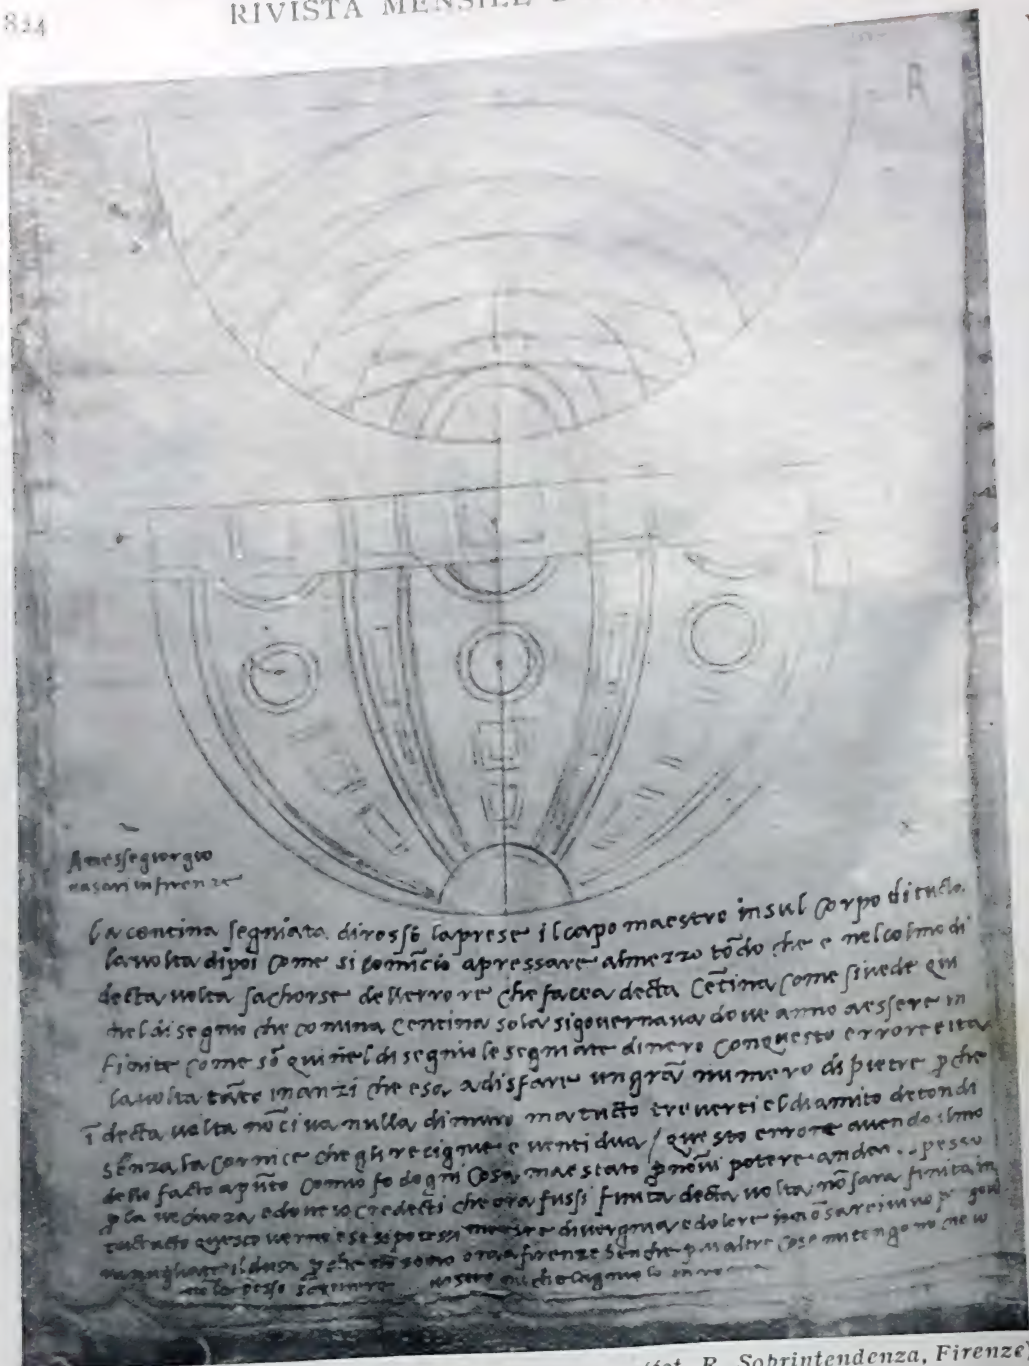 824
RIVISTA MENSILE
R
A messe giorgio
vasari in firenze
la centina segniata di rosso la prese il capo maestro in sul corpo di tucta
la volta dipoi come si comīcio a pressare al mezzo tōdo che e nel colmo di
decta volta sachorse dell errore che facea decta cētina come si vede qui
nel disegnio che comuna centina sola si governava dove anno a essere in
finite come sō qui nel disegnio le segniate di nero con questo errore e ita
la volta tāto inanzi che es a a disfare un grā numero di pietre p che
ī decta volta nō ci va nulla di muro ma tucto treverti e l diamito de tondi
sēnza la cornice che gli recignie e venti dua / questo errore avendo il mo
dello facto apūto como fo dogni cosa ma e stato p nōvi potere andar spesso
p la vechieza e dove io credecti che ora fussi finita decta volta nō sara finita in
tucto questo verno e se si potessi morire di vergnia e dolere io nō sarei vivo p
il duca p che sono ora a firenze ben che piu altre cose mi tengono che io
nō lo posso scrivere vostro michelagniolo in ro
R. Sobrintendenza, Firenze)